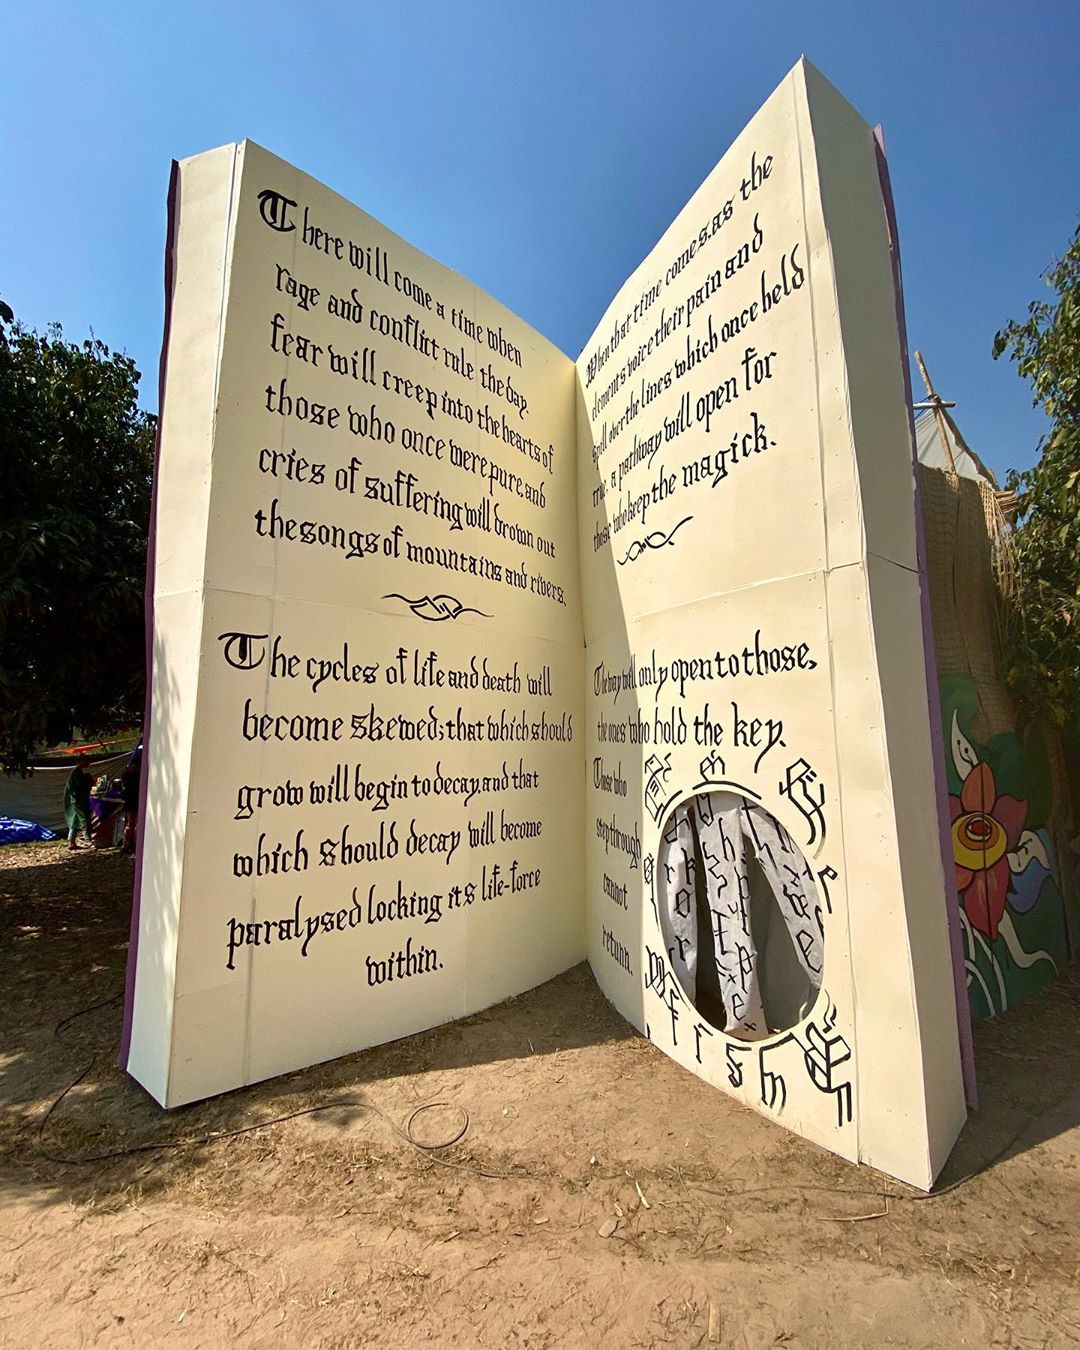 There will come a time when
rage and conflict rule the day.
fear will creep into the hearts of
those who once were pure, and
cries of suffering will drown out
the songs of mountains and rivers.
The cycles of life and death will
become skewed; that which should
grow will begin to decay, and that
which should decay will become
paralysed locking its life-force
within.
When that time comes, as the
elements voice their pain and
spill over the lines which once held
true, a pathway will open for
those who keep the magick.
The way will only open to those,
the ones who hold the key.
Those who
step through
cannot
return.